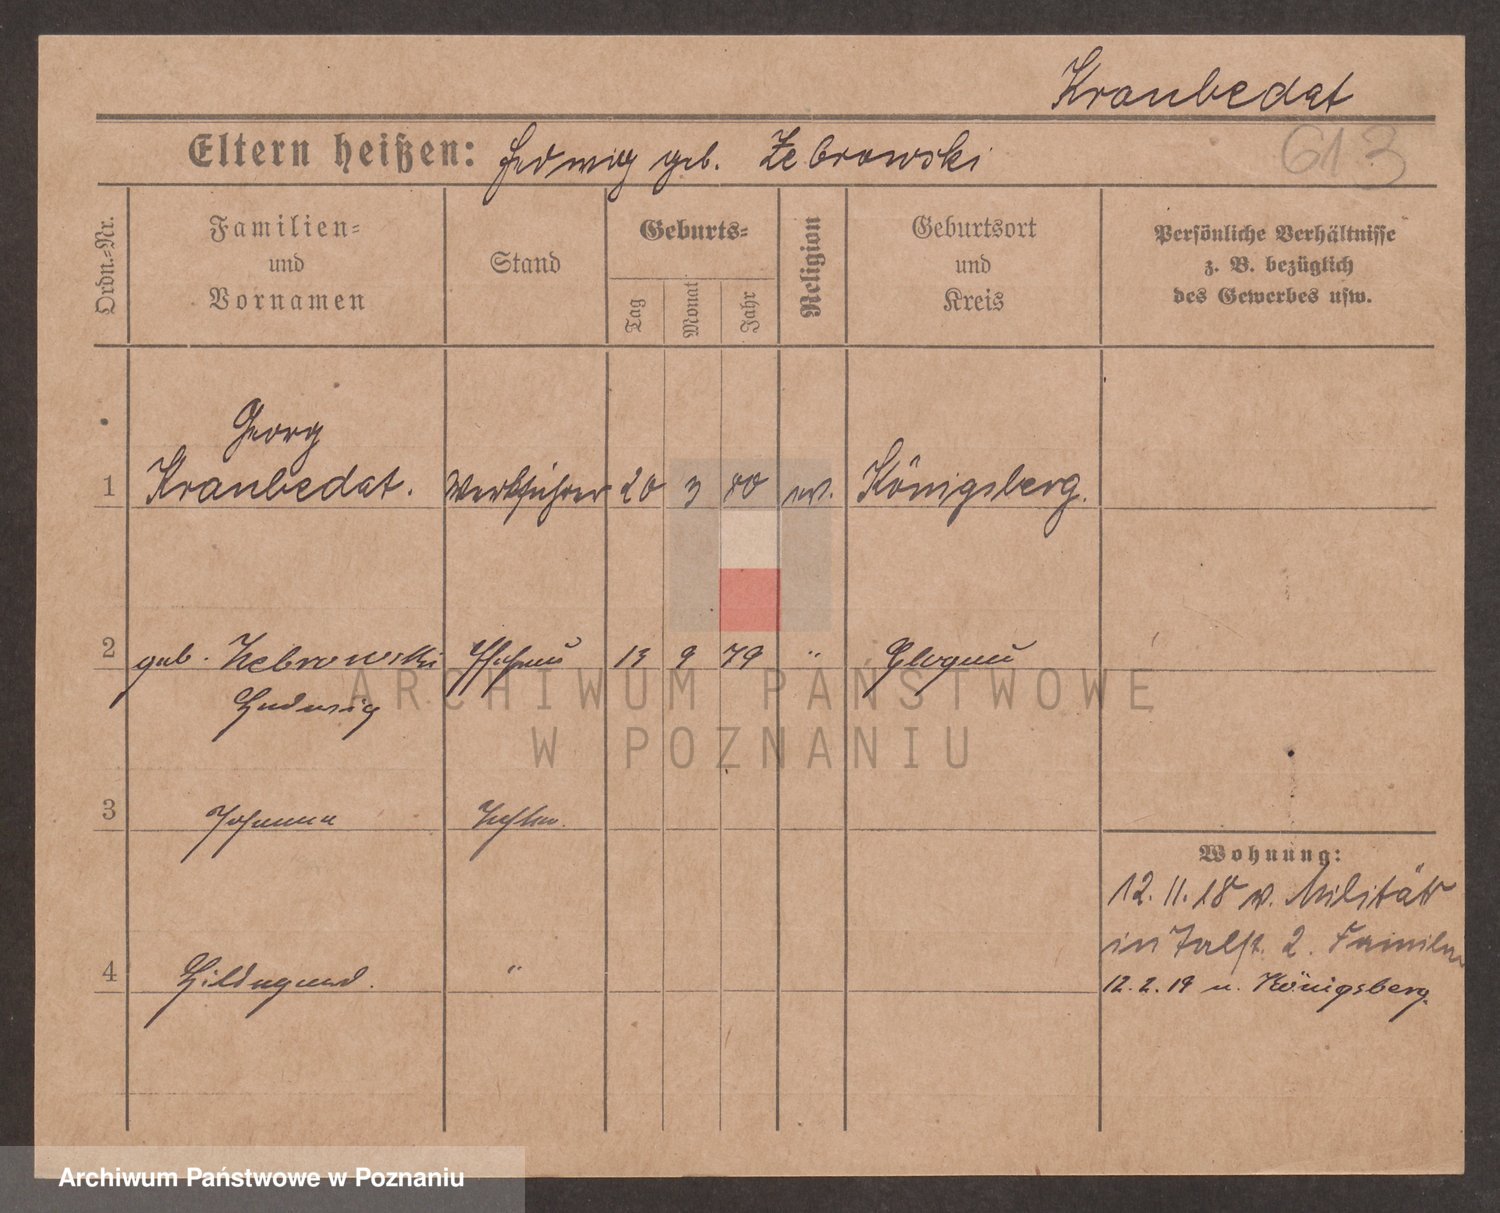 Kranbedat
613
Eltern heißen: Hedwig geb. Zebrowski
Ordn.-Nr.
Familien-
und
Vornamen
Stand
Geburts-
Tag
Monat
Jahr
Religion
Geburtsort
und
Kreis
Persönliche Verhältnisse
z. B. bezüglich
des Gewerbes usw.
Georg
1 Kranbedat. Werkführer 20 3 80 ev. Königsberg.
2 geb. Zebrowski Ehefrau 13 9 79 " Glogau
Hedwig
3 Johanna Tochter
4 Hildegard. "
Wohnung:
12. 11. 18 v. Militär
in 2. Familie
12. 2. 19 n. Königsberg.
ARCHIWUM PAŃSTWOWE
W POZNANIU
Archiwum Państwowe w Poznaniu